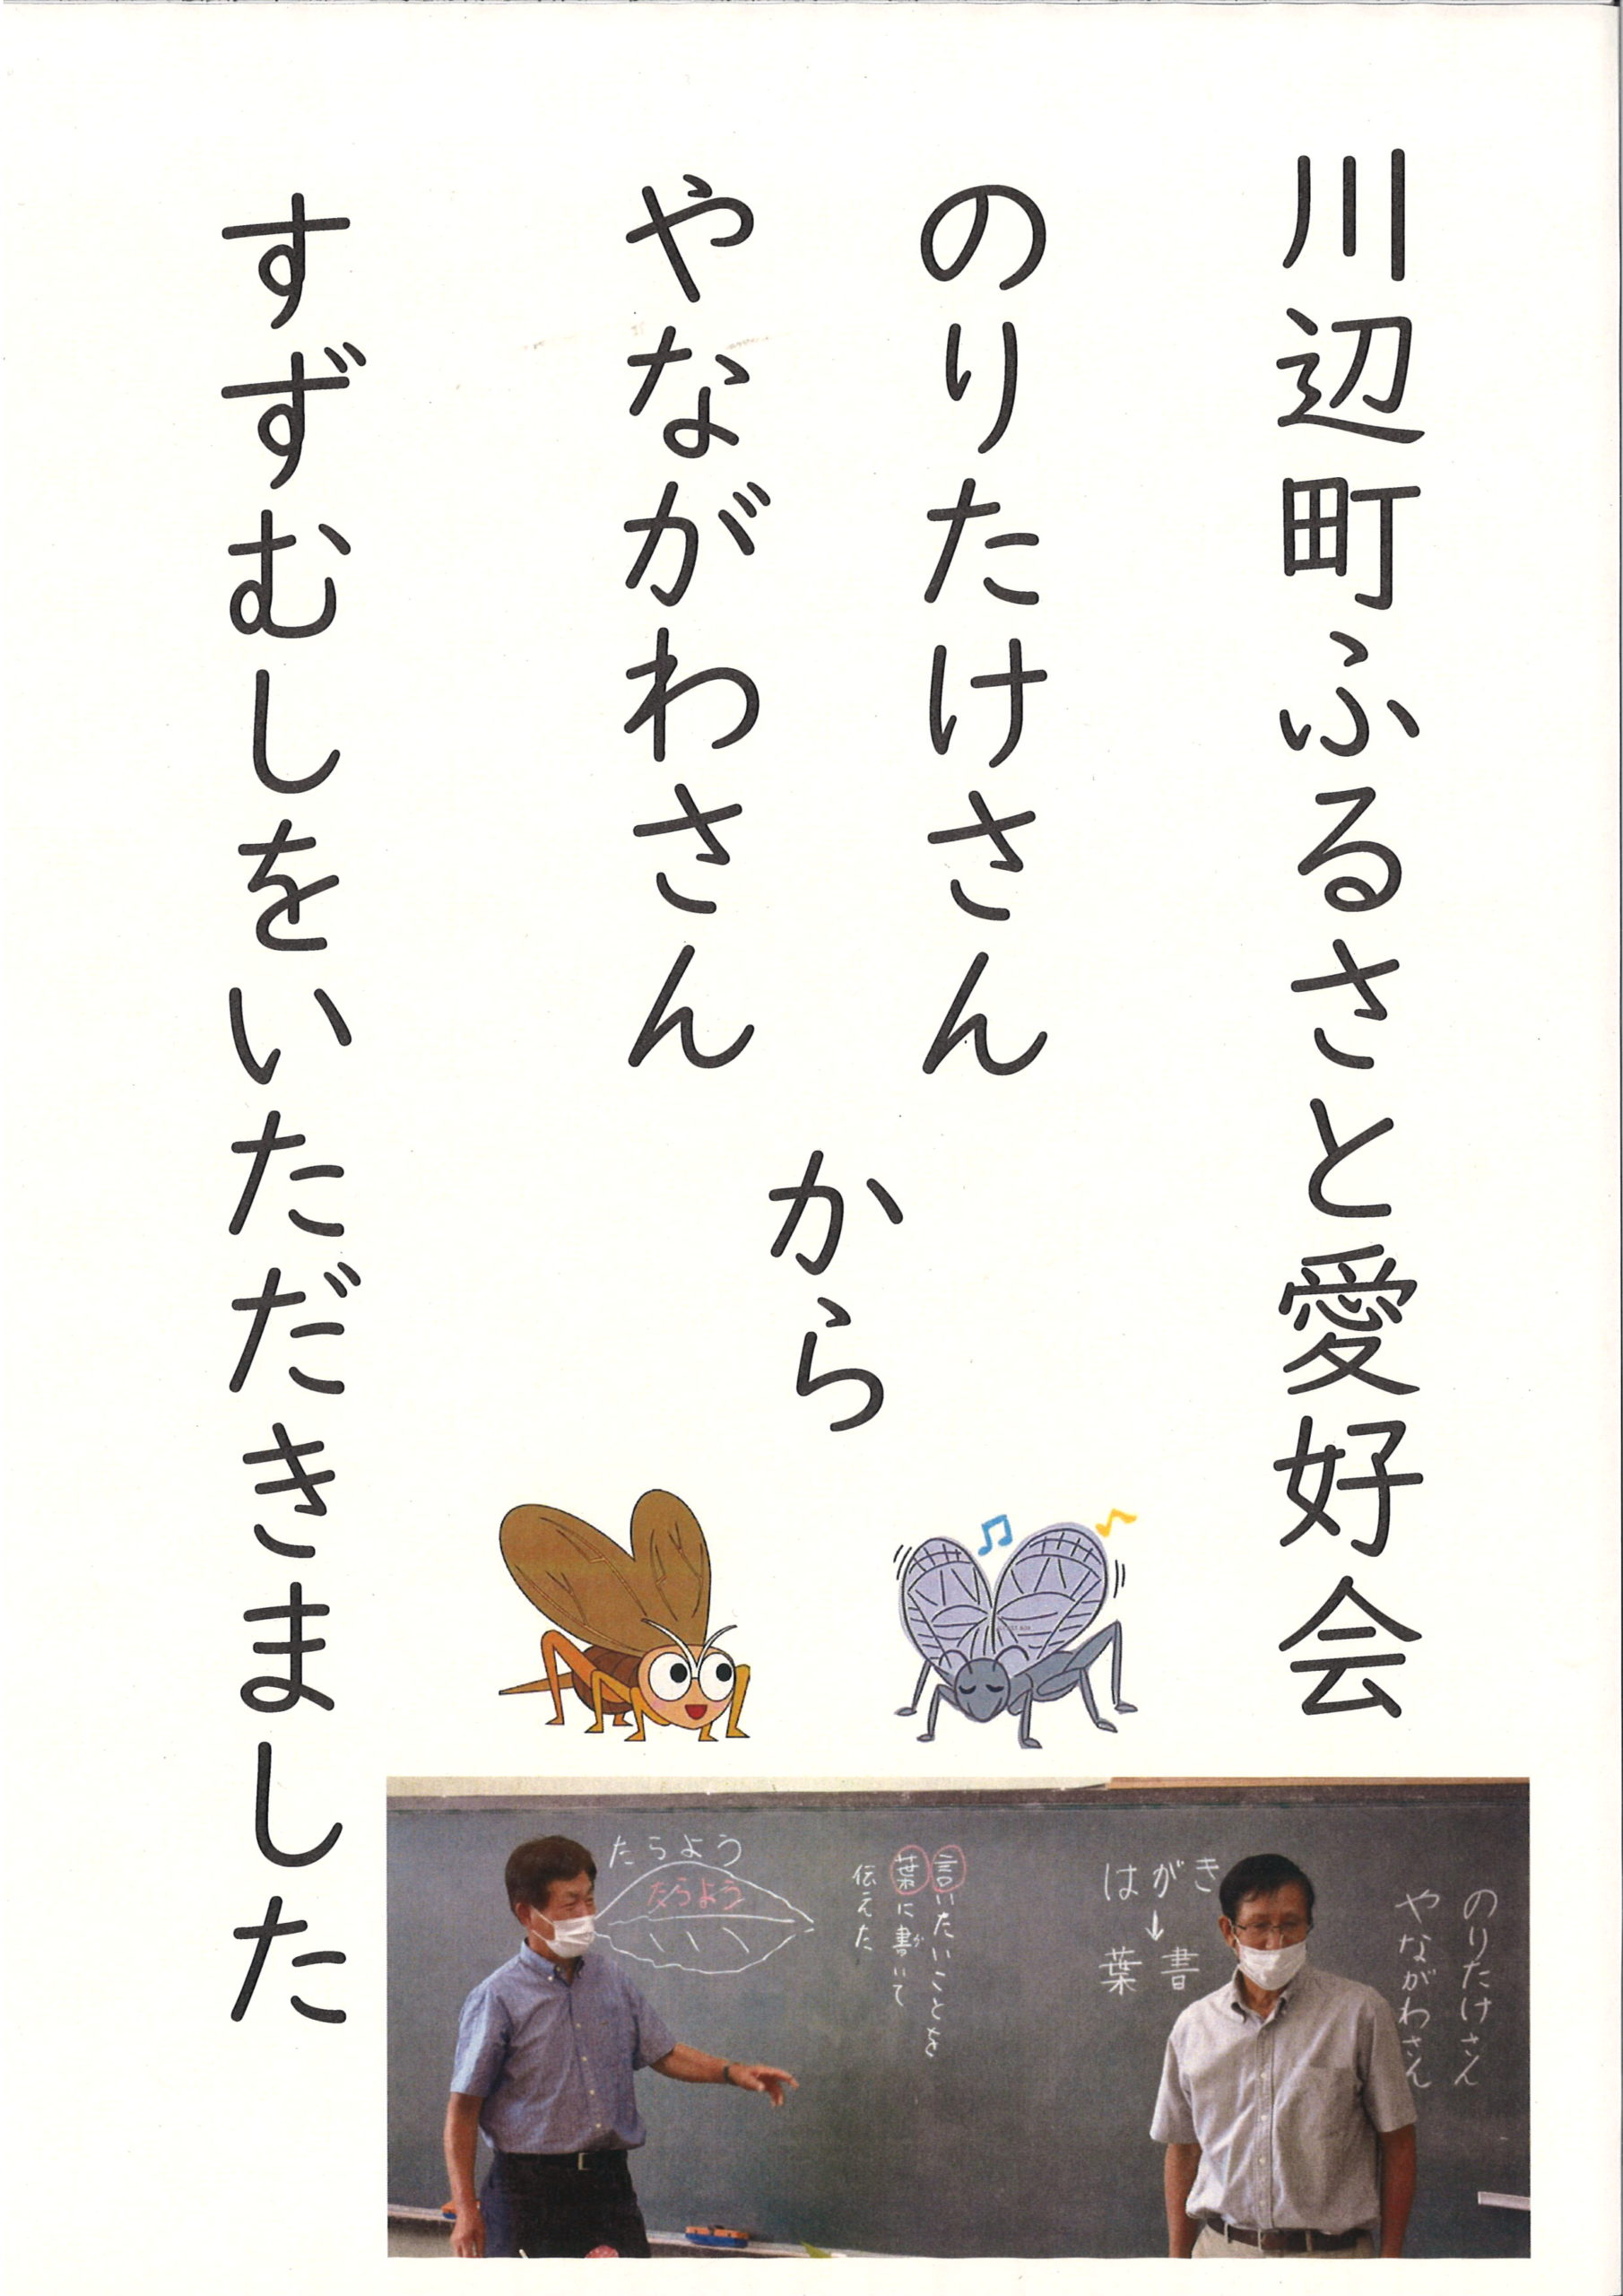 川辺町ふるさと愛好会
のりたけさん
やながわさん
から
すずむしをいただきました
のりたけさん
やながわさん
はがき
↓
葉書
言いたいことを
葉に書いて
伝えた
たらよう
たらよう